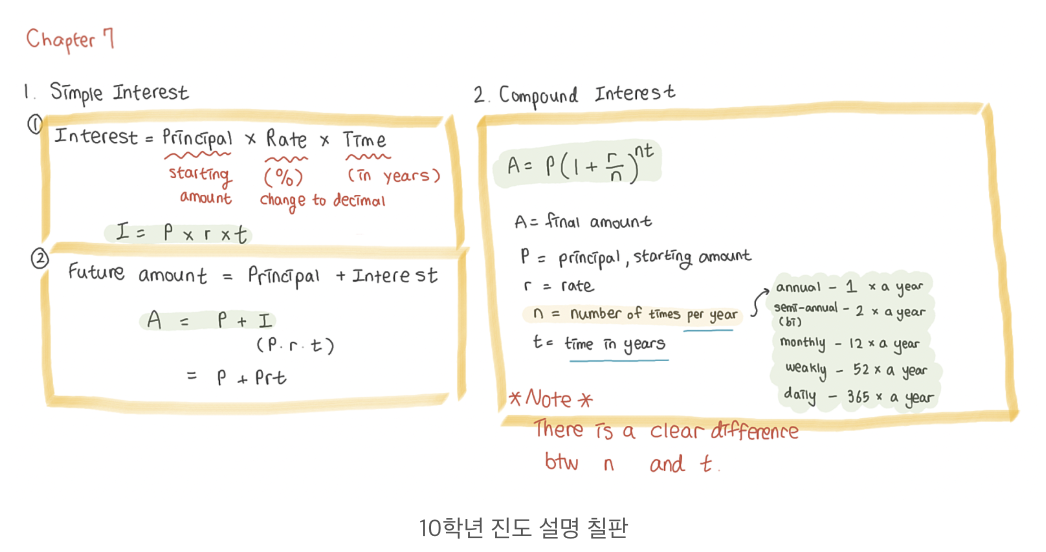 Chapter 7
1. Simple Interest
① Interest = Principal × Rate × Time
starting (%) (in years)
amount change to decimal
I = P × r × t
② Future amount = Principal + Interest
A = P + I
(P. r. t)
= P + Prt
2. Compound Interest
A = P(1 + r/n)^nt
A = final amount
P = principal, starting amount
r = rate
n = number of times per year
t = time in years
annual - 1 × a year
semi-annual - 2 × a year
(bi)
monthly - 12 × a year
weakly - 52 × a year
daily - 365 × a year
* Note *
There is a clear difference
btw n and t.
10학년 진도 설명 칠판